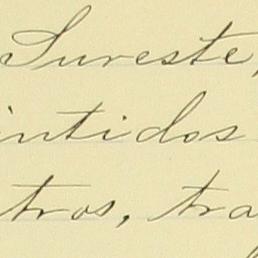 Sureste,
intidos
tros, tra